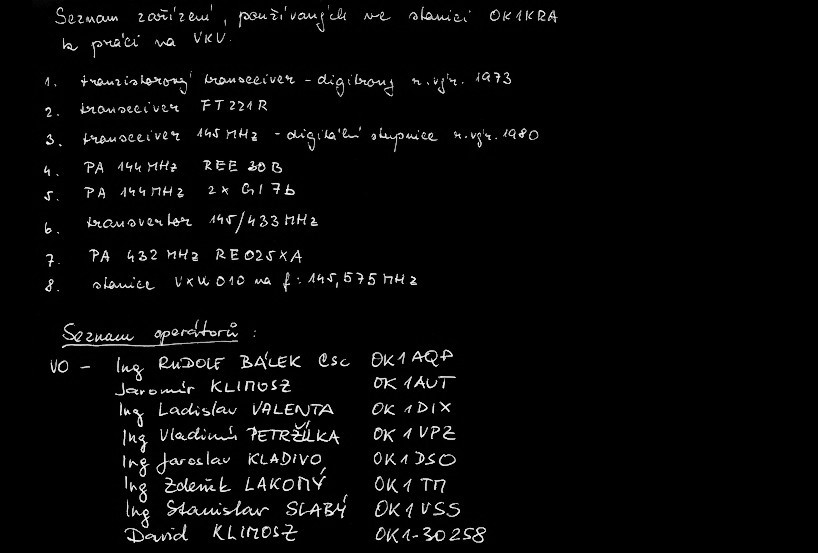 Seznam zařízení, používaných ve stanici OK1KRA
k práci na VKV.
1. tranzistorový transceiver - digitrony r.výr. 1973
2. transceiver FT221R
3. transceiver 145 MHz - digitální stupnice r.výr. 1980
4. PA 144 MHz REE 30B
5. PA 144 MHz 2x GI 7b
6. transvertor 145/433 MHz
7. PA 432 MHz RE025XA
8. stanice VXW 010 na f: 145,575 MHz
Seznam operátorů :
VO - Ing RUDOLF BÁLEK CSc OK1AQP
Jaromír KLIMOSZ OK1AUT
Ing Ladislav VALENTA OK1DIX
Ing Vladimír PETRŽÍLKA OK1VPZ
Ing Jaroslav KLADIVO OK1DSO
Ing Zdeněk LAKOMÝ OK1TM
Ing Stanislav SLABÝ OK1VSS
David KLIMOSZ OK1-30258